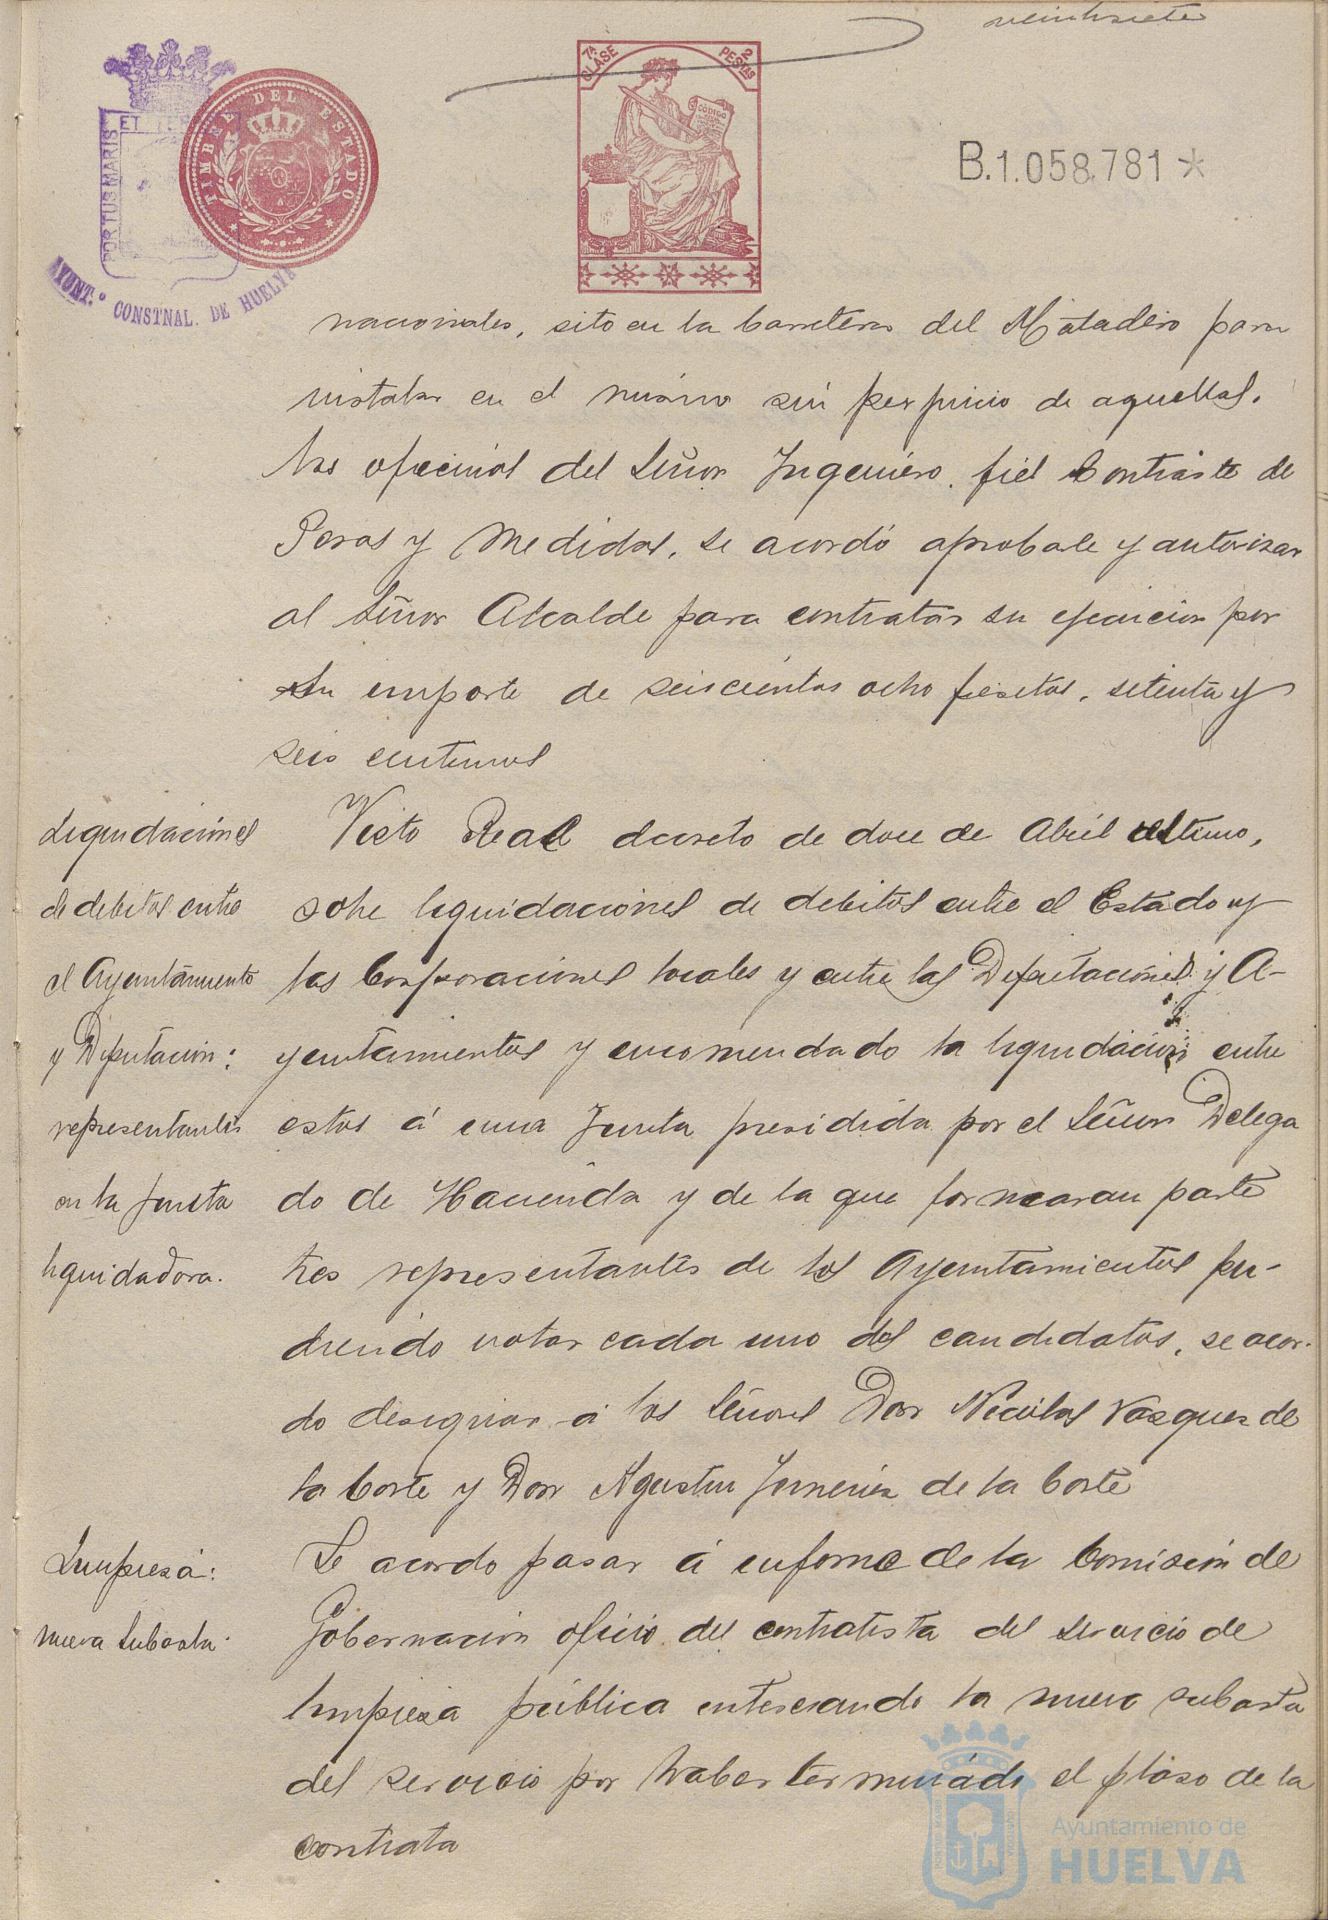 veintisiete
7ª CLASE
2 PESTAS
CÓDIGO
TIMBRE DEL ESTADO
PORTUS MARIS
ET TER
AYUNT.º CONSTNAL. DE HUELVA
B.1.058.781*
nacionales, sito en la Carretera del Matadero para
instalar en el mismo sin perjuicio de aquellas,
las oficinas del Señor Ingeniero fiel Contraste de
Pesas y Medidas, se acordó aprobale y autorizar
al Señor Alcalde para contratar su ejecucion por
su importe de seiscientas ocho pesetas, setenta y
seis centimos
Liquidaciones
de debitos entre
el Ayuntamiento
y Diputacion:
representantes
en la Junta
liquidadora.
Visto Real decreto de doce de Abril ultimo,
sobre liquidaciones de debitos entre el Estado y
las Corporaciones locales y entre las Diputaciones y A-
yuntamientos y encomendado la liquidacion entre
estos á una Junta presidida por el Señor Delega
do de Hacienda y de la que formaran parte
tres representantes de los Ayuntamientos pu-
diendo votar cada uno dos candidatos, se acor-
do designar á los Señores Don Nicolas Vazquez de
la Corte y Don Agustin Jimenez de la Corte
Limpieza:
nueva subasta.
Se acordo pasar á informe de la Comision de
Gobernacion oficio del contratista del servicio de
limpieza pública interesando la nueva subasta
del servicio por haber terminado el plazo de la
contrata
Ayuntamiento de
HUELVA